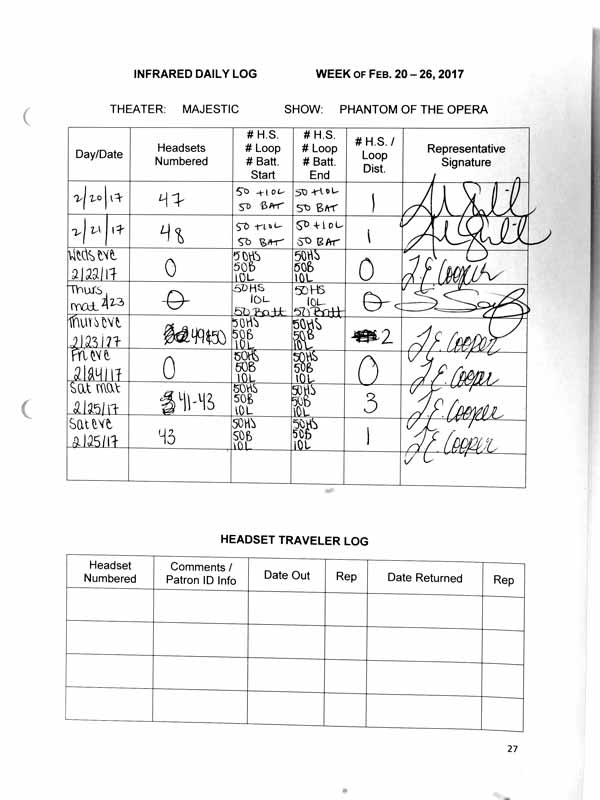 INFRARED DAILY LOG WEEK OF FEB. 20 – 26, 2017
THEATER: MAJESTIC SHOW: PHANTOM OF THE OPERA
Day/Date Headsets Numbered # H.S. # Loop # Batt. Start # H.S. # Loop # Batt. End # H.S. / Loop Dist. Representative Signature
2/20/17 47 50 +10L 50 BAT 50 +10L 50 BAT 1
2/21/17 48 50 +10L 50 BAT 50 +10L 50 BAT 1
Weds eve 2/22/17 0 50HS 50B 10L 50HS 50B 10L 0 J.E. Cooper
Thurs mat 2/23 0 50HS 10L 50 Batt 50HS 10L 50 Batt 0
Thurs eve 2/23/27 49&50 50HS 50B 10L 50HS 50B 10L 2 J.E. Cooper
Fri eve 2/24/17 0 50HS 50B 10L 50HS 50B 10L 0 J.E. Cooper
Sat mat 2/25/17 41-43 50HS 50B 10L 50HS 50B 10L 3 J.E. Cooper
Sat eve 2/25/17 43 50HS 50B 10L 50HS 50B 10L 1 J.E. Cooper
HEADSET TRAVELER LOG
Headset Numbered Comments / Patron ID Info Date Out Rep Date Returned Rep
27